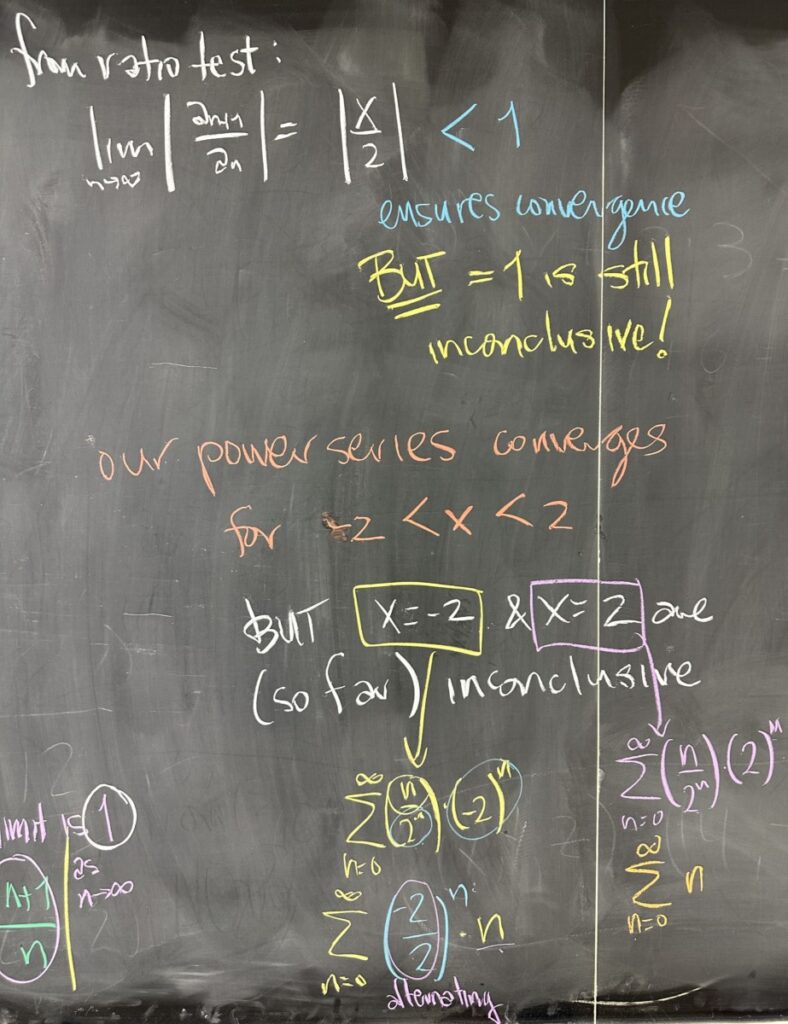 from ratio test:
lim n→∞ | an+1 / an | = | x / 2 | < 1
ensures convergence
BUT = 1 is still
inconclusive!
our power series converges
for -2 < x < 2
BUT x = -2 & x = 2 are
(so far) inconclusive
∞ Σ n=0 (n / 2^n) · (-2)^n
∞ Σ n=0 (-2 / 2)^n · n
alternating
∞ Σ n=0 (n / 2^n) · (2)^n
∞ Σ n=0 n
limit is 1
as
n→∞
n+1 / n